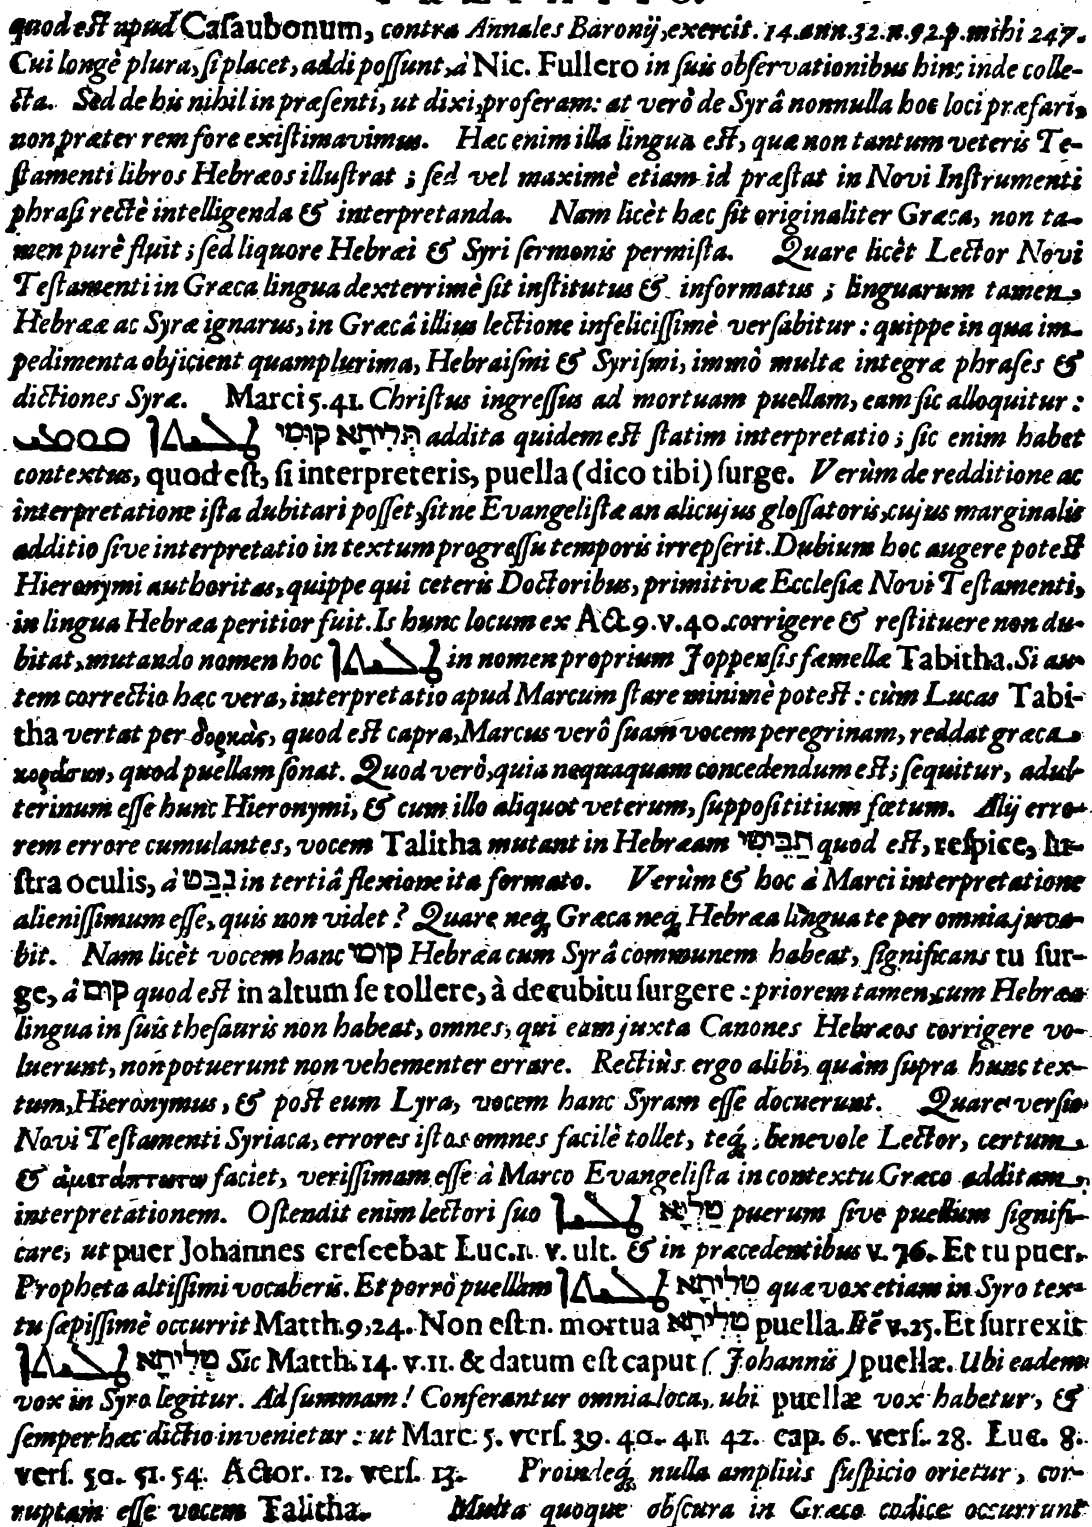 quod est apud Casaubonum, contra Annales Baronij, exercit. 14. ann. 32. n. 92. p. mihi 247.
Cui longè plura, si placet, addi possunt, à Nic. Fullero in suis observationibus hinc inde colle-
cta. Sed de his nihil in præsenti, ut dixi, proferam: at verò de Syrâ nonnulla hoc loci præfari,
non præter rem fore existimavimus. Hæc enim illa lingua est, quæ non tantum veteris Te-
stamenti libros Hebræos illustrat; sed vel maximè etiam id præstat in Novi Instrumenti
phrasi rectè intelligenda & interpretanda. Nam licèt hæc sit originaliter Græca, non ta-
men purè fluit; sed liquore Hebræi & Syri sermonis permista. Quare licèt Lector Novi
Testamenti in Græca lingua dexterrimè sit institutus & informatus; linguarum tamen
Hebrææ ac Syræ ignarus, in Græcâ illius lectione infelicissimè versabitur: quippe in qua im-
pedimenta objicient quamplurima, Hebraismi & Syrismi, immò multæ integræ phrases &
dictiones Syræ. Marci 5. 41. Christus ingressus ad mortuam puellam, eam sic alloquitur:
ܛܠܝܬܐ ܩܘܡܝ טְלִיתָא קוּמִי addita quidem est statim interpretatio; sic enim habet
contextus, quod est, si interpreteris, puella (dico tibi) surge. Verùm de redditione ac
interpretatione ista dubitari posset, sitne Evangelistæ an alicujus glossatoris, cujus marginalis
additio sive interpretatio in textum progressu temporis irrepserit. Dubium hoc augere potest
Hieronymi authoritas, quippe qui ceteris Doctoribus, primitivæ Ecclesiæ Novi Testamenti,
in lingua Hebræa peritior fuit. Is hunc locum ex Act. 9. v. 40. corrigere & restituere non du-
bitat, mutando nomen hoc ܛܠܝܬܐ in nomen proprium Joppensis fæmellæ Tabitha. Si au-
tem correctio hæc vera, interpretatio apud Marcum stare minimè potest: cùm Lucas Tabi-
tha vertat per δορκὰς, quod est capra, Marcus verò suam vocem peregrinam, reddat græca
κοράσιον, quod puellam sonat. Quod verò, quia nequaquam concedendum est; sequitur, adul-
terinum esse hunc Hieronymi, & cum illo aliquot veterum, supposititium fœtum. Alij erro-
rem errore cumulantes, vocem Talitha mutant in Hebræam תַּבִּיטִי quod est, respice, lu-
stra oculis, à נָבַט in tertiâ flexione ita formato. Verùm & hoc à Marci interpretatione
alienissimum esse, quis non videt? Quare neq; Græca neq; Hebræa lingua te per omnia juva-
bit. Nam licèt vocem hanc קוּמִי Hebræa cum Syrâ communem habeat, significans tu sur-
ge, à קוּם quod est in altum se tollere, à decubitu surgere: priorem tamen, cum Hebræa
lingua in suis thesauris non habeat, omnes, qui eam juxta Canones Hebræos corrigere vo-
luerunt, non potuerunt non vehementer errare. Rectiùs ergo alibi, quàm supra hunc tex-
tum, Hieronymus, & post eum Lyra, vocem hanc Syram esse docuerunt. Quare versio
Novi Testamenti Syriaca, errores istos omnes facilè tollet, teq; benevole Lector, certum
& ἀμετάπτωτον faciet, verissimam esse à Marco Evangelista in contextu Græco additam
interpretationem. Ostendit enim lectori suo ܛܠܝܐ טַלְיָא puerum sive puellum signifi-
care, ut puer Johannes crescebat Luc. 1. v. ult. & in præcedentibus v. 76. Et tu puer,
Propheta altissimi vocaberis. Et porrò puellam ܛܠܝܬܐ טְלִיתָא quæ vox etiam in Syro tex-
tu sæpissimè occurrit Matth. 9, 24. Non est n. mortua טְלִיתָא puella. Itē v. 25. Et surrexit
ܛܠܝܬܐ טְלִיתָא Sic Matth. 14. v. 11. & datum est caput (Johannis) puellæ. Ubi eadem
vox in Syro legitur. Ad summam! Conferantur omnia loca, ubi puellæ vox habetur, &
semper hæc dictio invenietur: ut Marc. 5. vers. 39. 40. 41. 42. cap. 6. vers. 28. Luc. 8.
vers. 50. 51. 54. Actor. 12. vers. 13. Proindeq; nulla ampliùs suspicio orietur, cor-
ruptam esse vocem Talitha. Multa quoque obscura in Græco codice occurrunt